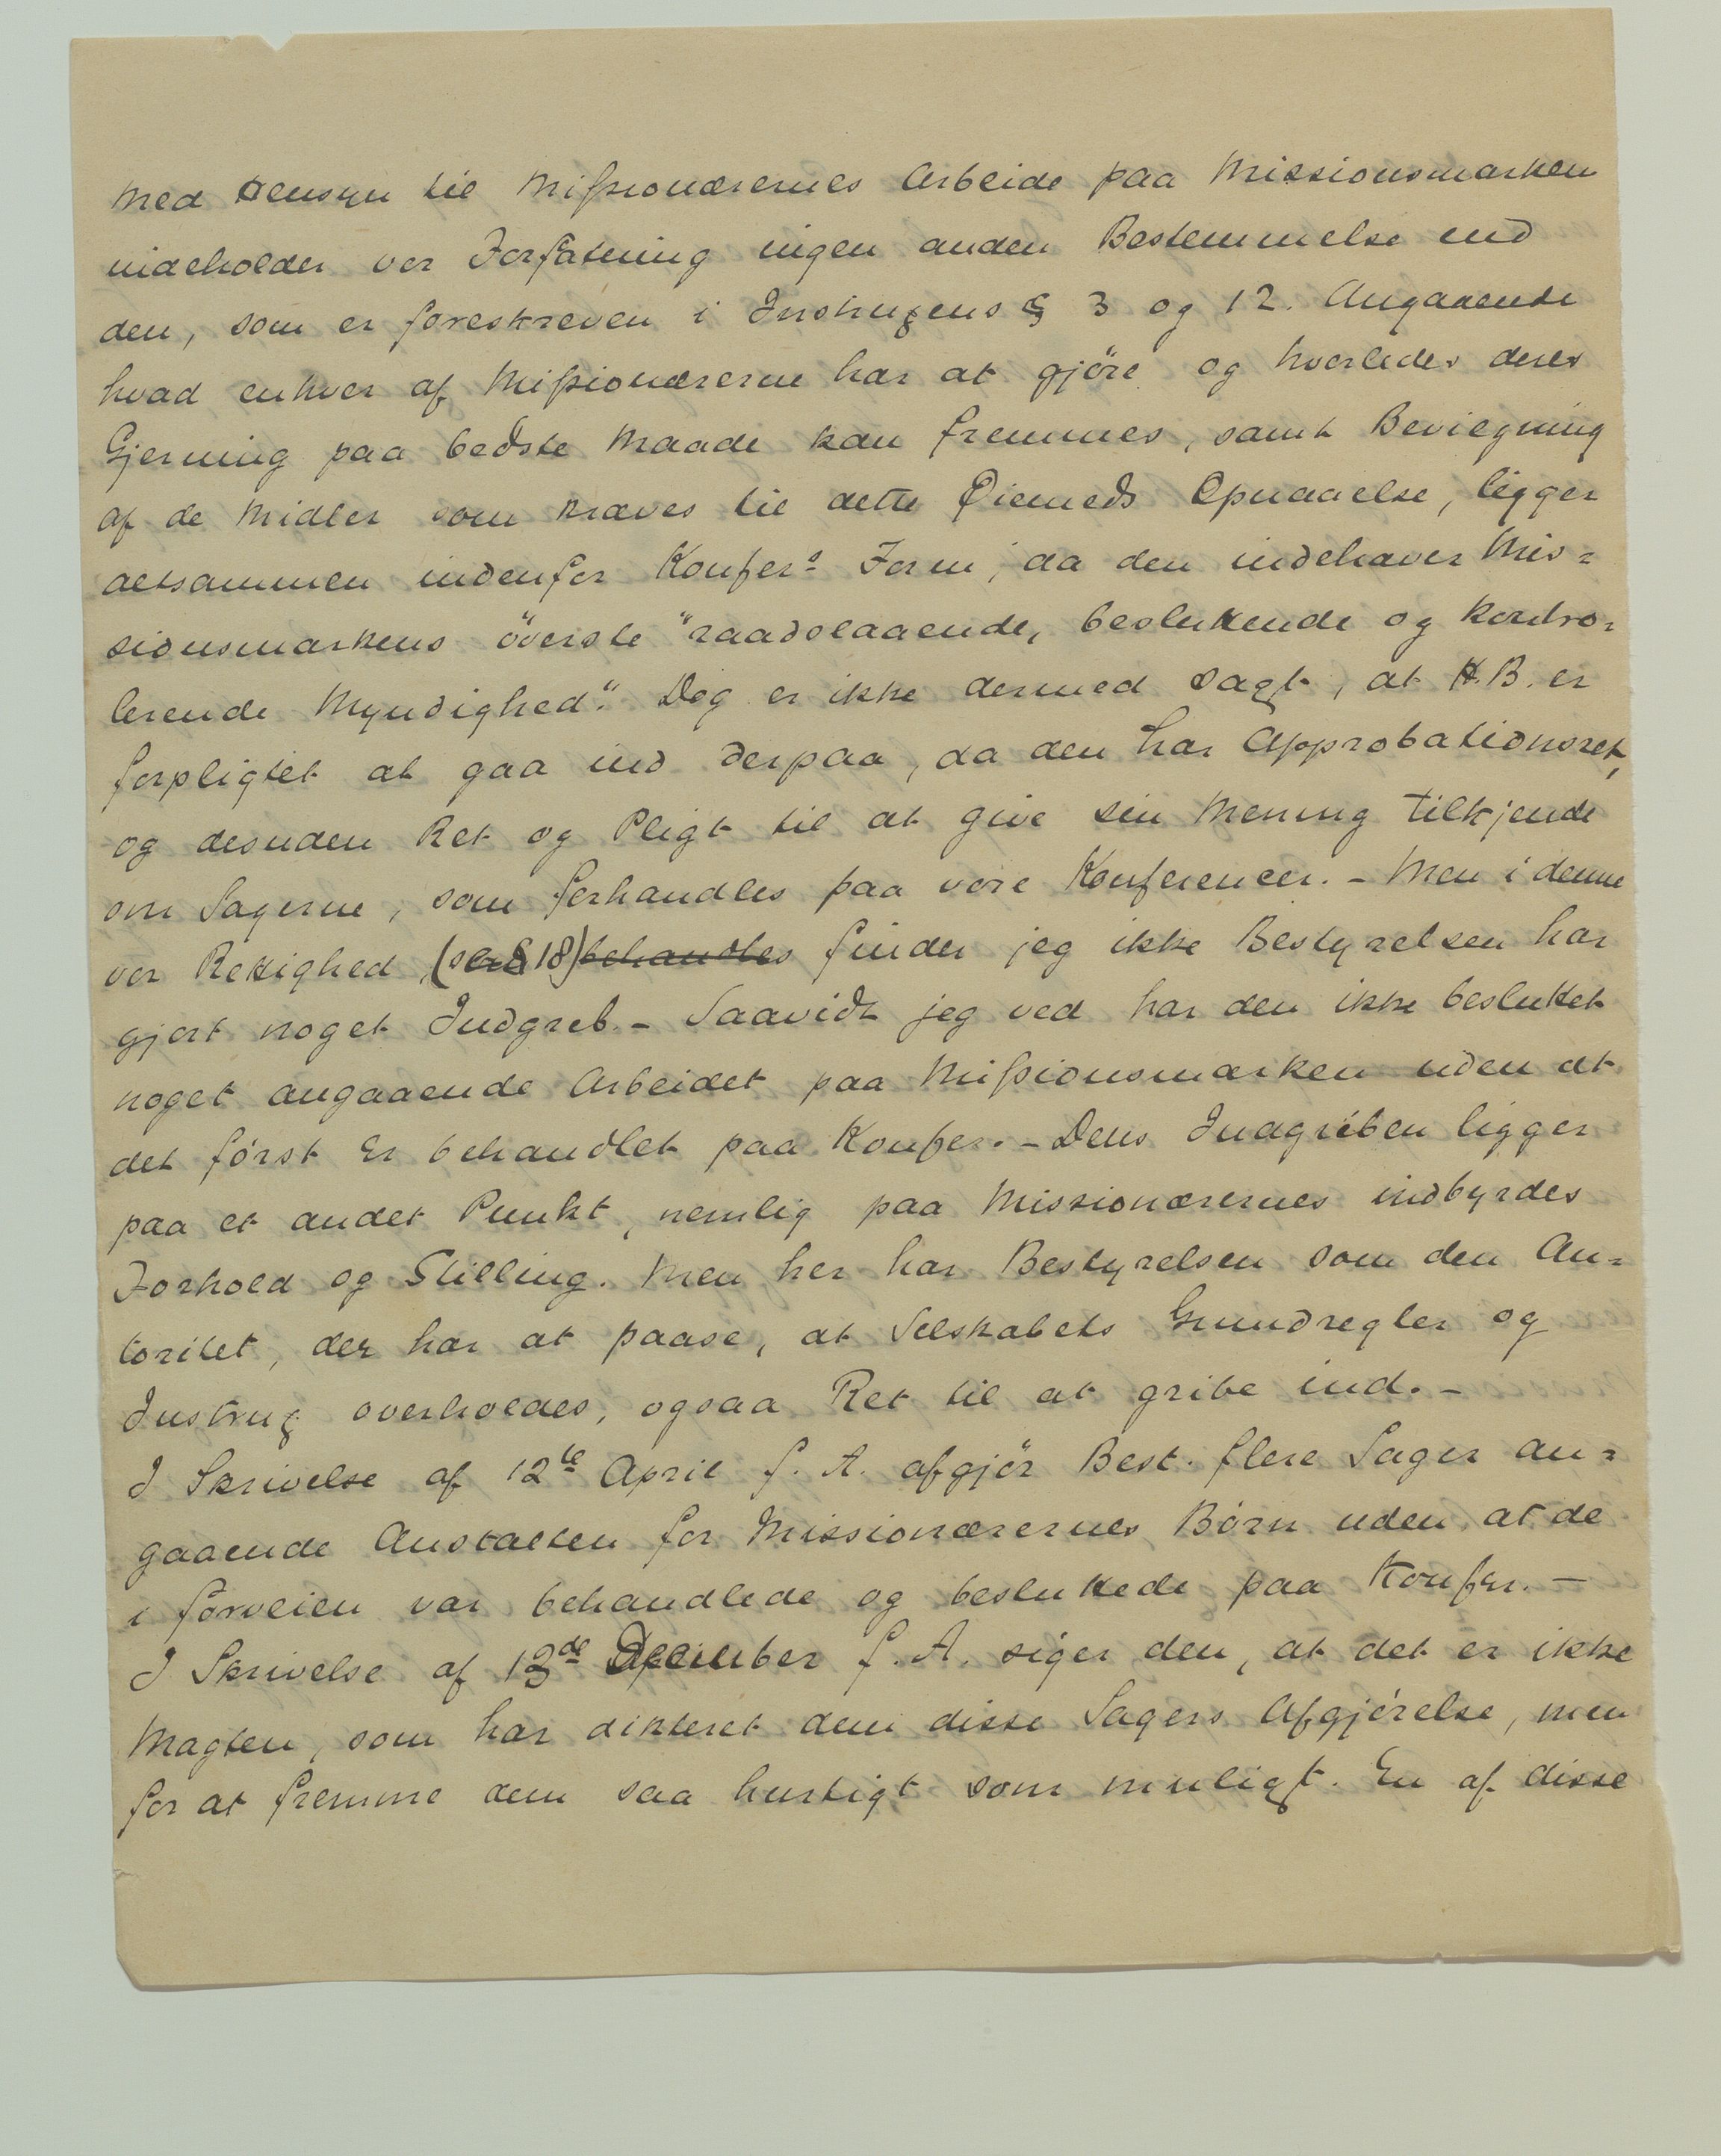 Med Hensyn til Missionærernes Arbeide paa Missionsmarken
indeholder vor Forfatning ingen anden Bestemmelse end
den, som er foreskreven i Instruxens § 3 og 12. Angaaende
hvad enhver af Missionærerne har at gjöre og hvorledes deres
Gjerning paa bedste Maade kan fremmes, samt Bevilgning
af de Midler som kræves til dette Øiemeds Opnaaelse, ligger
altsammen indenfor Konfers Form, da den indehaver Mis=
sionsmarkens överste "raadslaaende, besluttende og kontro=
lerende Myndighed". Dog er ikke dermed sagt, at H.B. er
forpligtet at gaa ind derpaa, da den har Approbationsret,
og desuden Ret og Pligt til at give sin Mening tilkjende
om Sagerne, som forhandles paa vore Konferencer. - Men i denne
vor Rettighed, (se § 18) behandles finder jeg ikke Bestyrelsen har
gjort noget Indgreb. - Saavidt jeg ved har den ikke besluttet
noget angaaende Arbeidet paa Missionsmarken uden at
det först er behandlet paa Konfer. - Dens Indgriben ligger
paa et andet Punkt, nemlig paa Missionærernes indbyrdes
Forhold og Stilling. Men her har Bestyrelsen som den Au=
toritet, der har at paase, at Selskabets Grundregler og
Instrux overholdes, ogsaa Ret til at gribe ind. -
I Skrivelse af 12te April f. A. afgjör Best. flere Sager an=
gaaende Anstalten for Missionærernes Börn uden at de
i forveien var behandlede og besluttede paa Konfer. -
I Skrivelse af 13de December f. A. siger den, at det er ikke
Magten, som har dikteret dem disse Sagers Afgjörelse, men
for at fremme dem saa hurtigt som muligt. En af disse